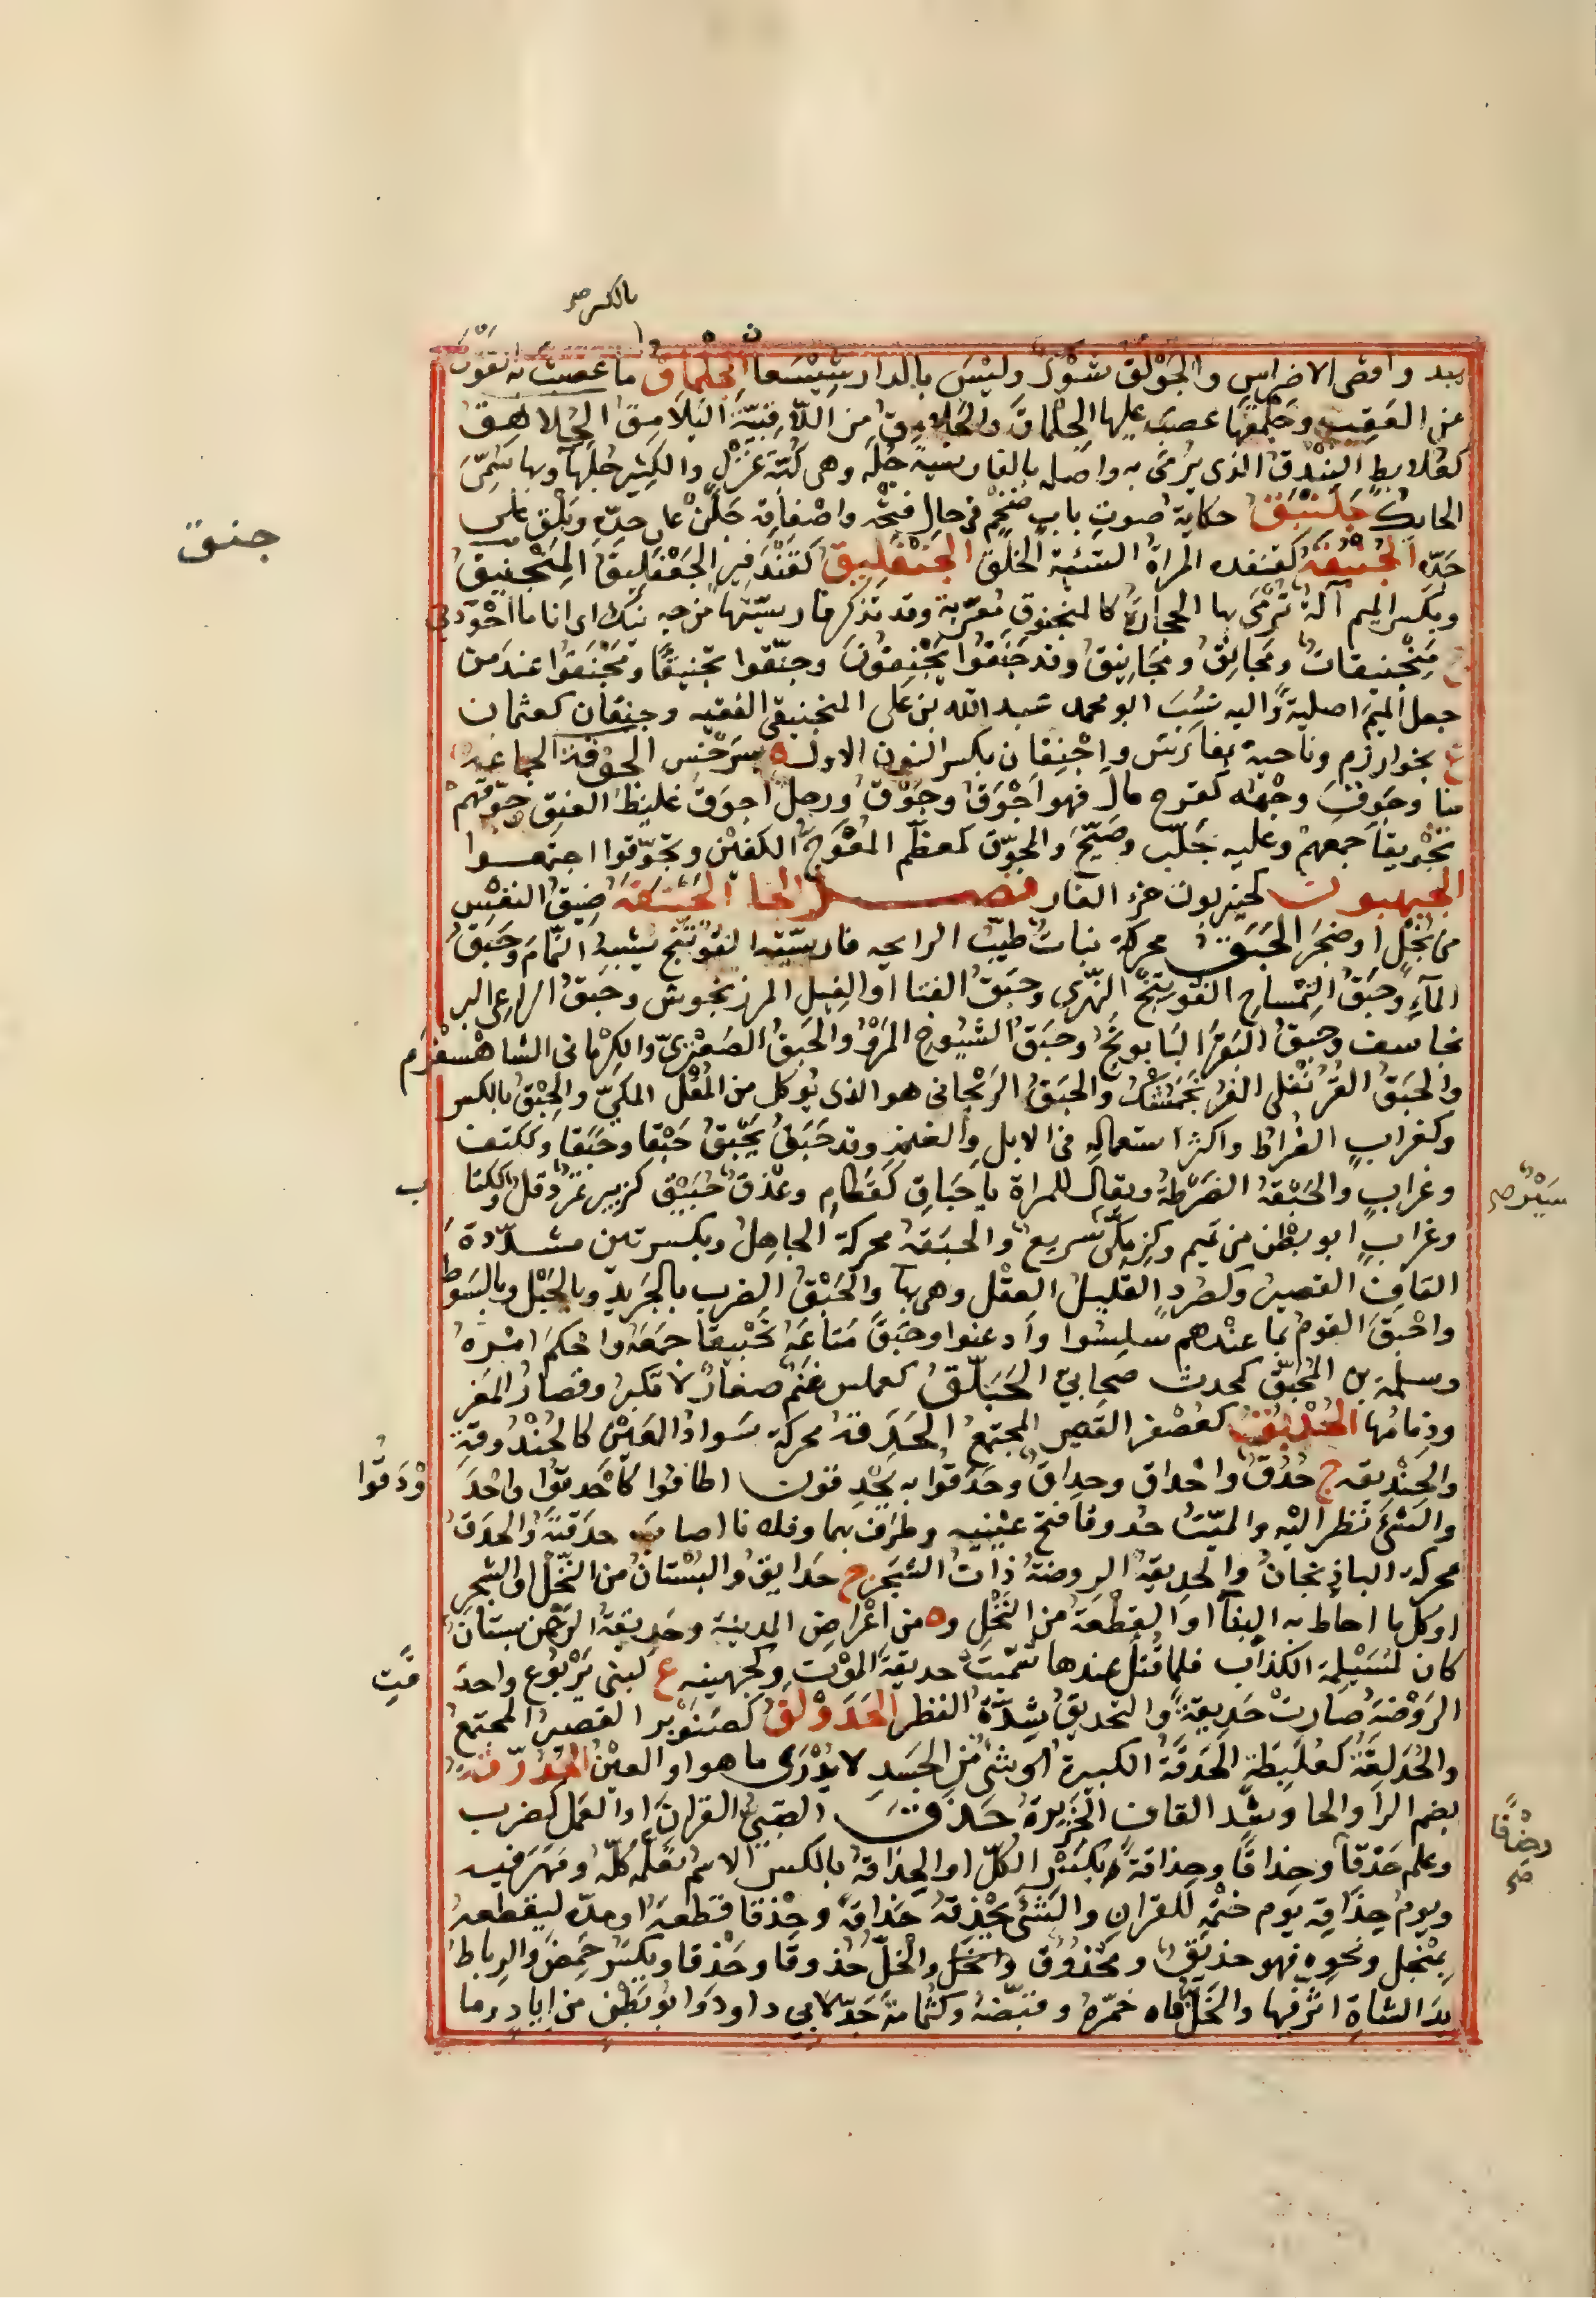 بالكسر صح
بيد واقصى الاضراس والجولق شوك وليس بالدار شيشعان الجلماق ما عصبت به القوس
من العقب وجلمقها عصب عليها الجلماق والجلامق من الاقبية اليلامق الجلاهق
كعلابط البندق الذى يرمى به واصله بالفارسية جله وهى كبة غزل والكثير جلها وبها سمى
الحايك جلنبلق حكاية صوت باب ضخم فى حال فتحه واصفاقه جلن على حدة وبلق على
جنق
حدة الجنبقة كقنفذه المراة السيئة الخلق الجنفليق كقندفير الجعفليق المنجنيق
وبكسر الميم آلة ترمى بها الحجارة كالمنجنوق معربة وقد تذكر فارسيتها من جه نيك اى انا ما اجودنى
ج منجنيقات ومجانق ومجانيق وقد جنقوا يجنقون وجنقوا تجنيقا ومجنقوا عند من
جعل الميم اصلية واليه نسب ابو محمد عبد الله بن على المنجنيقى الفقيه وجنقان كعثمان
ع بخوارزم وناحية بفارس واجنقان بكسر النون الاول ه بسرخس الجوقة الجماعة
منا وجوق وجهه كفرح مال فهو اجوق وجوق ورجل اجوق غليظ العنق جوقهم
تجويقا جمعهم وعليه جلب وصيح والجوق كمعظم المعوج الكفين وتجوقوا اجتمعوا
الجيهبوق كحيزبون خرء الفار فصل الحا الحبتقة ضيق النفس
من بخل او ضجر الحبق محركة نبات طيب الرايحه فارسيته الفوتنج يشبه النمام وحبق
المآء وحبق التمساح الفوتنج النهرى وحبق الفتا او الفيل المرزنجوش وحبق الراعى البر
نجاسف وحبق البقر البابونج وحبق الشيوخ المرو والحبق الصعترى والكرمانى الشاهسفرم
والحبق القرنفلى الفرنجمشك والحبق الريحانى هو الذى يوكل من المقل المكى والحبق بالكسر
وكغراب الضراط واكثر استعماله فى الابل والغنم وقد حبق يحبق حبقا وحبقا وككتف
وغراب والحبقة الضرطة ويقال للمراة يا حباق كقطام وعذق حبيق كزبير تمر دقل وككتا ب
سير صح
وغراب ابو بطن من تميم وكزمكى سريع والحبقة محركة الجاهل وبكسرتين مشددة
القاف القصير وكصرد القليل العقل وهى بها والحبق الضرب بالجريد وبالحبل وبالسوط
واحبق القوم بما عندهم سلسوا واذعنوا وحبق متاعه تحبيقا جمعه واحكم امره
وسلمة بن المحبق كمحدث صحابى الحبلق كعملس غنم صغار لا تكبر وقصار المعز
ودمامها الحدبق كعصفر القصير المجتمع الحدقة محركة سواد العين كالحندوقة
والحنديقه ج حدق واحداق وحداق وحدقوا به يحدقون اطافوا كاحدقوا واحد ودقوا
والشئ نظر اليه والميت حدوقا فتح عينيه وطرف بهما وفلانا اصاب حدقته والحدق
محركة الباذنجان والحديقة الروضة ذات الشجر ج حدايق والبستان من النخل او الشجر
او كل ما احاط به البنآ او القطعة من النخل و ه من اعراض المدينة وحديقة الرحمن بستان
كان لمسيلمة الكذاب فلما قتل عندها سميت حديقة الموت وكجهينه ع لبنى يربوع واحد قت
الروضة صارت حديقة والتحديق شدة النظر الحدولق كصنوبر القصير المجتمع
والحدلقة كعلبطة الحدقة الكبيرة او شئ من الجسد لا يدرى ما هو او العين الحدرقة
بضم الرا والحا وبشد القاف الخزيرة حذق الصبى القران او العمل كضرب
وعلم حذقا وحذاقا وحذاقة وبكسر الكل او الحذاقة بالكسر الاسم تعلمه كله ومهر فيه
ويوم حذاقه يوم ختمه للقران والشئ يحذقه حذاقة وحذقا قطعه او مده ليقطعه
بمنجل ونحوه فهو حذيق ومحذوق والخل حذوقا وحذقا ويكسر حمض والرباط
يد الشاة اثر فيها والخل فاه حمزه وقبضه وكثمامة جد لابى داود وابو بطن من اياد وما